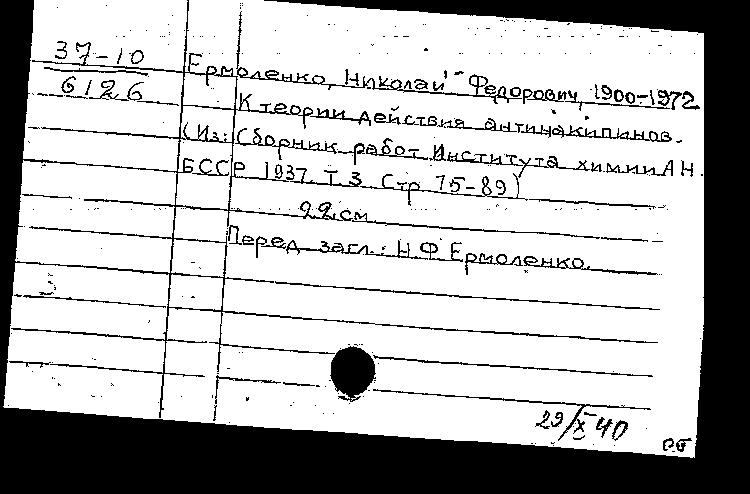 37-10
6126
Ермоленко, Николай Федорович, 1900-1972
К теории действия антинакипинов.
(Из: Сборник работ Института химии АН
БССР 1937. Т. 3. Стр. 75-89)
22 см.
Перед загл.: Н.Ф. Ермоленко.
29/X 40